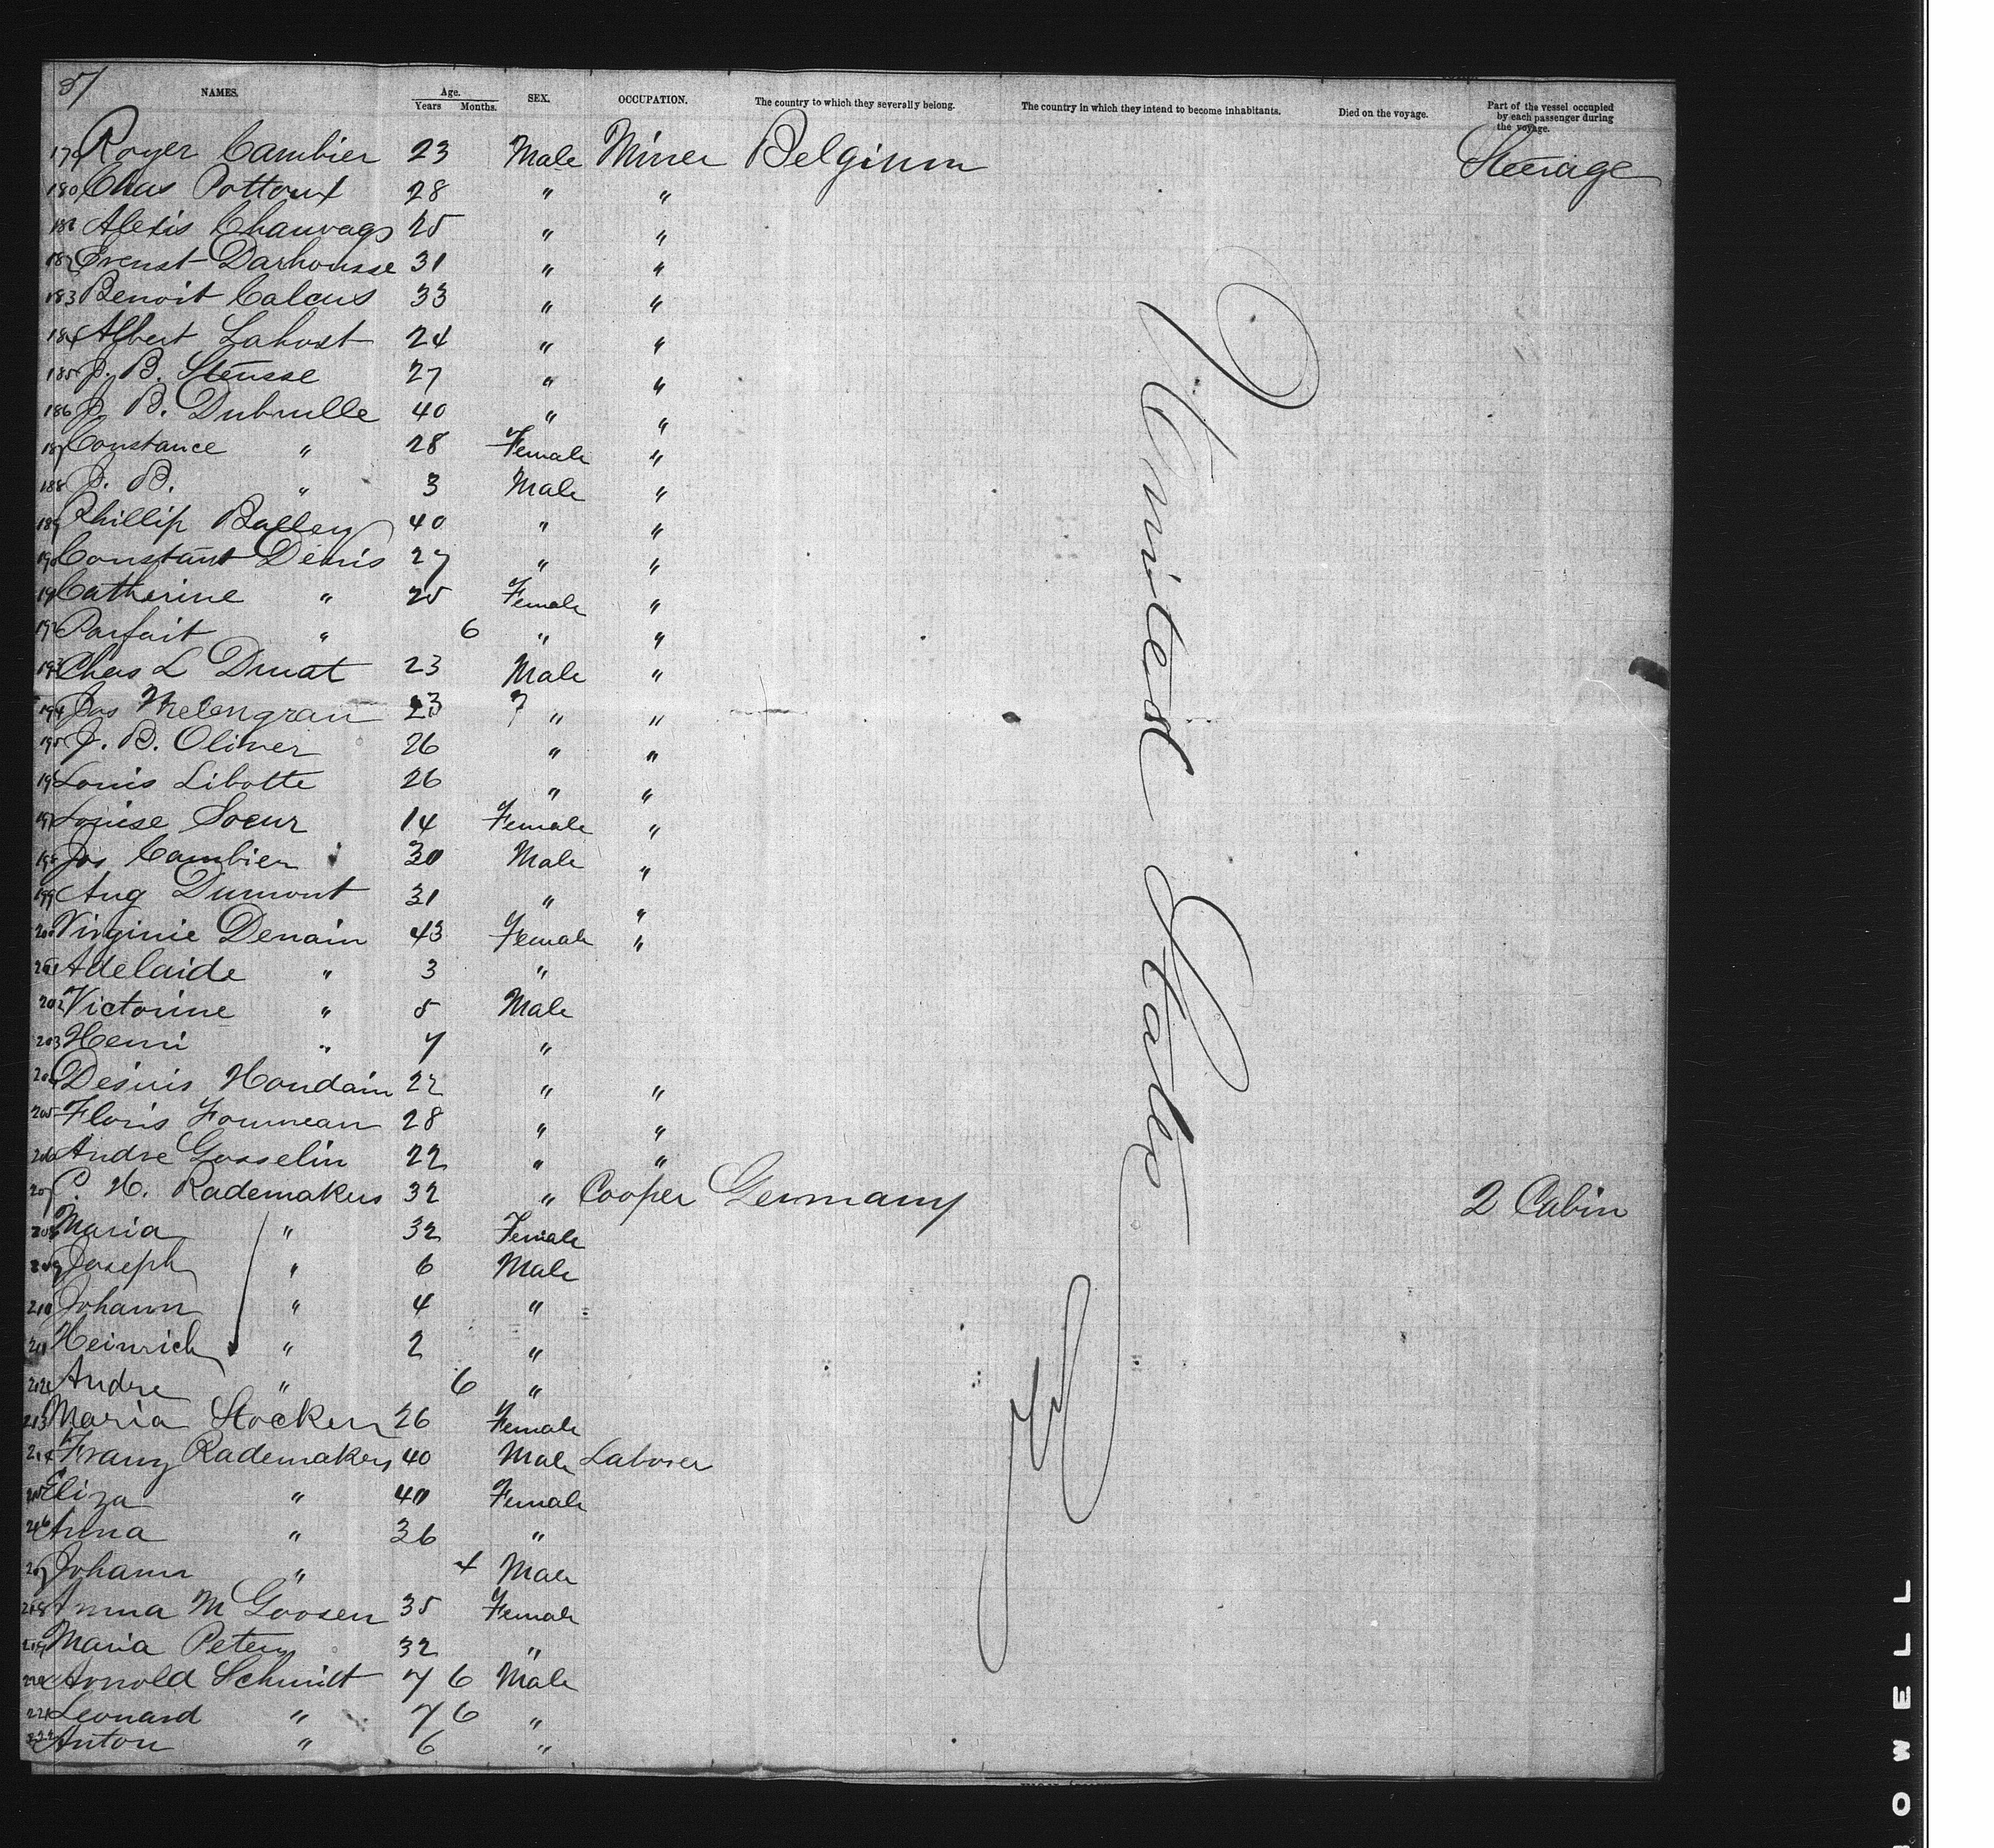 NAMES. Age. Years Months. SEX. OCCUPATION. The country to which they severally belong. The country in which they intend to become inhabitants. Died on the voyage. Part of the vessel occupied by each passenger during the voyage.
179 Royer Cambier 23 Male Miner Belgium Steerage
180 Chas Pottoux 28 " "
181 Alexis Chauvags 25 " "
182 Ernest Darhousse 31 " "
183 Benoit Calcus 33 " "
184 Albert Lahost 24 " "
185 J. B. Steusse 27 " "
186 J. B. Dubrulle 40 " "
187 Constance " 28 Female "
188 J. B. " 3 Male "
189 Phillip Balley 40 " "
190 Constant Denis 27 " "
191 Catherine " 25 Female "
192 Parfait " 6 " "
193 Chas L Druat 23 Male "
194 Jos Melengrau 23 " "
195 J. B. Oliver 26 " "
196 Louis Libotte 26 " "
197 Louise Soeur 14 Female "
198 Jos Cambier 30 Male "
199 Aug Dumont 31 " "
200 Virginie Denain 43 Female "
201 Adelaide " 3 "
202 Victorine " 5 Male
203 Henri " 7 "
204 Desiris Houdain 22 " "
205 Floris Fourneau 28 " "
206 Andre Gosselin 22 " "
207 C. H. Rademakers 32 " Cooper Germany 2 Cabin
208 Maria " 32 Female
209 Joseph " 6 Male
210 Johann " 4 "
211 Heinrich " 2 "
212 Andre " 6 "
213 Maria Stocken 26 Female
214 Franz Rademakers 40 Male Laborer
215 Eliza " 40 Female
216 Anna " 36 "
217 Johann " 4 Male
218 Anna M Goosen 35 Female
219 Maria Peters 32 "
220 Arnold Schmidt 7 6 Male
221 Leonard " 7 6 "
222 Anton " 6 "
United States
OWELL